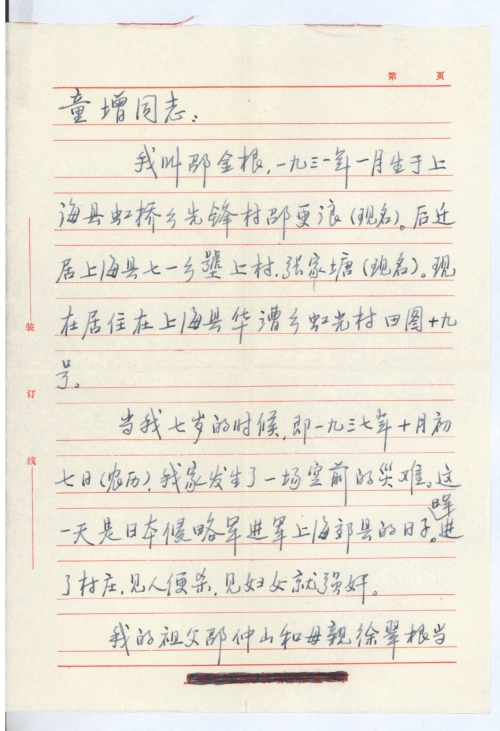 第 页
童增同志：
我叫邵金根，一九三一年一月生于上
海县虹桥乡先锋村邵更浪（现名）。后迁
居上海县七一乡上村，张家塘（现名）。现
在居住在上海县华漕乡虹光村田图十九
号。
当我七岁的时候，即一九三七年十月初
七日（农历），我家发生了一场空前的災难。这
一天是日本侵略军进军上海郊县的日子。日军进
了村庄，见人便杀，见妇女就强奸。
我的祖父邵仲山和母親徐翠根当
装
订
线